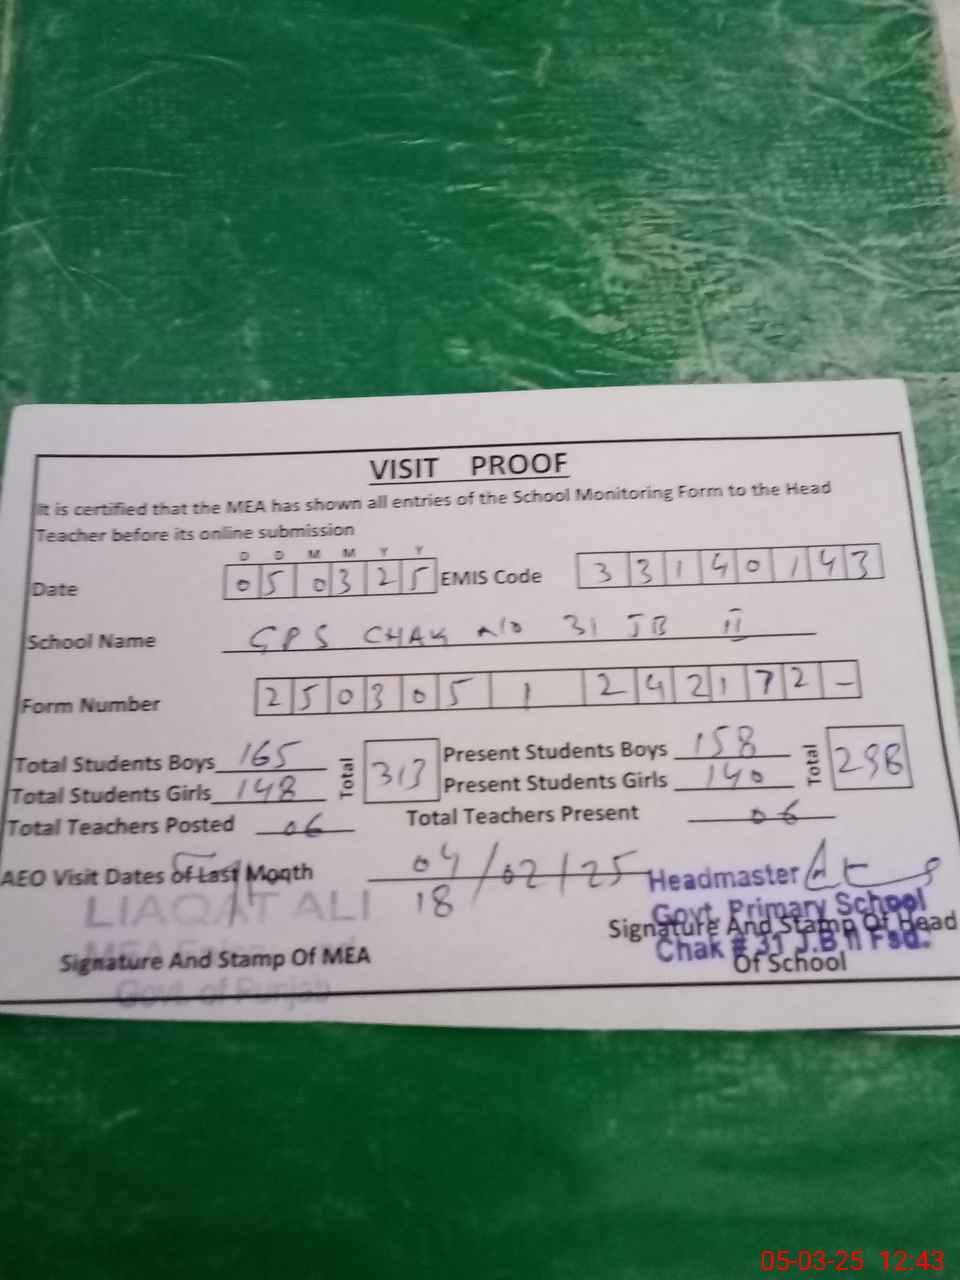 VISIT PROOF
It is certified that the MEA has shown all entries of the School Monitoring Form to the Head
Teacher before its online submission
D D M M Y Y
Date 0 5 0 3 2 5 EMIS Code 3 3 1 4 0 1 4 3
School Name GPS CHAK N/O 31 JB II
Form Number 2 5 0 3 0 5 1 2 4 2 1 7 2 -
Total Students Boys 165 Total 313 Present Students Boys 158 Total 298
Total Students Girls 148 Present Students Girls 140
Total Teachers Posted 06 Total Teachers Present 06
AEO Visit Dates of Last Month 04/02/25
18
Headmaster
Govt. Primary School
Chak # 31 J.B II Fsd.
LIAQAT ALI
Govt. of Punjab
Signature And Stamp Of MEA
Signature And Stamp Of Head
Of School
05-03-25 12:43